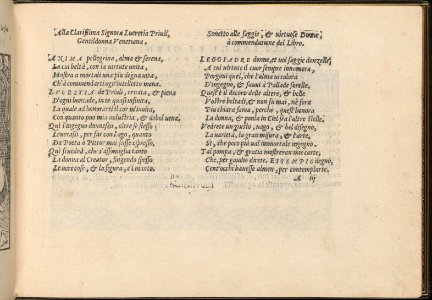 Alla Clarissima Signora Lucretia Priuli,
Gentildonna Venetiana.
ANIMA pellegrina, alma & serena,
La cui beltà, con la virtute unita,
Mostra a mortali una più degna vita,
Ch'à commandar
LUCRETIA de Priuli, ornata, & piena
D'ogni bontade, in te quasi infinita,
La quale ad honorarti ciascun invita,
Con quanto può mia industria, & debil vena.
Qui l'ingegno donnesco, chiere sè stesso
Levarassi, per far con l'ago, quanto
Da Poeta ò Pittor mai fusse espresso.
Qui si vedrà, che s'assomiglia tanto
La donna al Creator, fingendo spesso
Le nerezze, & la figura, e'l manto.
Sonetto alle saggie, & virtuose Donne
à commendatione del Libro.
LEGGIADRE donne, et voi saggie donzelle,
A cui virtute il cuor sempre innamora,
Porgoni quel, che l'alma vi colora
D'ingegno, & fauvi à Pallade sorelle.
Quest'è il decoro delle altere, & belle
Vostre beltati, & non si mai, nè fura
Più chiuso starà, perche, quest'honora
La donna, & ponla in Ciel fra l'altre stelle.
Vedrete un gusto, vago, & bel disegno,
La varietà, la gran misura, & l'arte,
Sì, che poco più val immortale ingegno.
Tal pompa, & gratia mostreran mie carte,
Che, per gaudio direte, ESSEMPIO degno,
Cent'occhi havesse almen, per contemplarte.
A iij